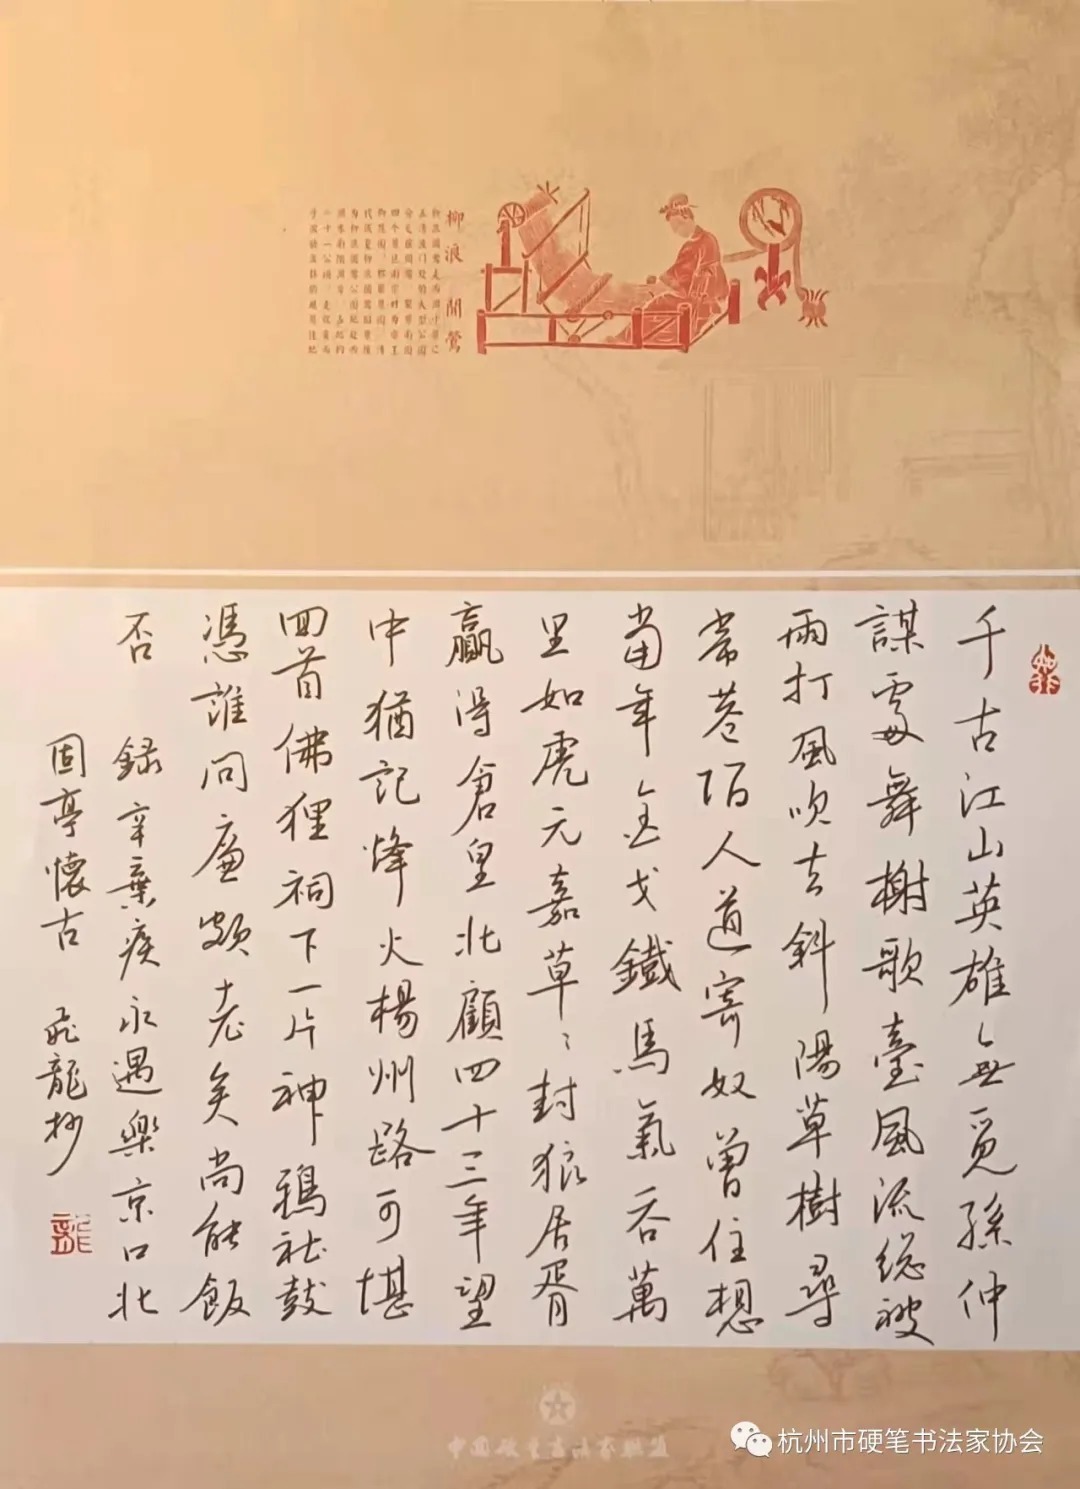 柳浪聞鶯
千古江山英雄無覓孫仲
謀處舞榭歌臺風流総被
雨打風吹去斜陽草樹尋
常巷陌人道寄奴曾住想
當年金戈鐵馬氣吞萬
里如虎元嘉草〻封狼居胥
贏得倉皇北顧四十三年望
中猶記烽火楊州路可堪
回首佛狸祠下一片神鴉社鼓
憑誰問廉頗老矣尚能飯
否 録辛棄疾永遇樂京口北
固亭懷古 飛龍抄
龍
中国硬笔书法家联盟
杭州市硬笔书法家协会